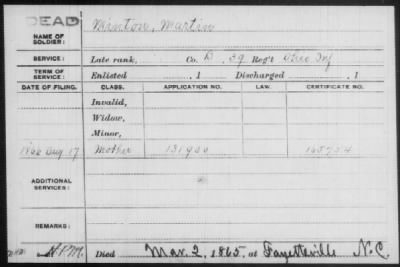 DEAD
NAME OF SOLDIER: Minton, Martin
SERVICE: Late rank, Co. D, 39 Reg't Ohio Inf
TERM OF SERVICE: Enlisted , 1 Discharged , 1
DATE OF FILING. CLASS. APPLICATION NO. LAW. CERTIFICATE NO.
Invalid,
Widow,
Minor,
1866 Aug 17 Mother 131900
ADDITIONAL SERVICES:
REMARKS:
Died Mar. 2, 1865, at Fayetteville N.C.